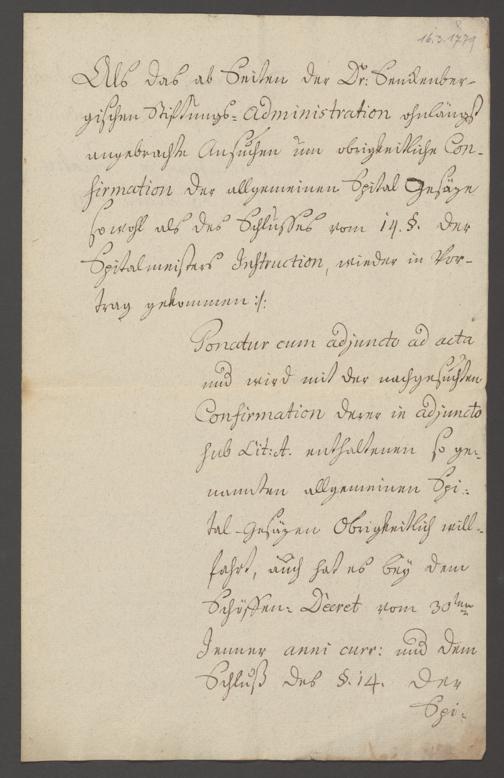 16.3.1779
Als das ab Seiten der Dr: Senkenber-
gischen Stiftungs-Administration ohnlängst
angebrachte Ansuchen um obrigkeitliche Con-
firmation der allgemeinen Spital Gesäze
sowohl als des Schlusses vom 14. §. der
Spitalmeisters Instruction, wieder in Vor-
trag gekommen :/:
Ponatur cum adjuncto ad acta
und wird mit der nachgesuchten
Confirmation derer in adjuncto
sub Lit: A. enthaltenen so ge-
nannten allgemeinen Spi-
tal-Gesäzen Obrigkeitlich will-
fahrt, auch hat es bey dem
Schöffen-Decret vom 30ten
Jenner anni curr: und dem
Schluß des §. 14. der
Spi-